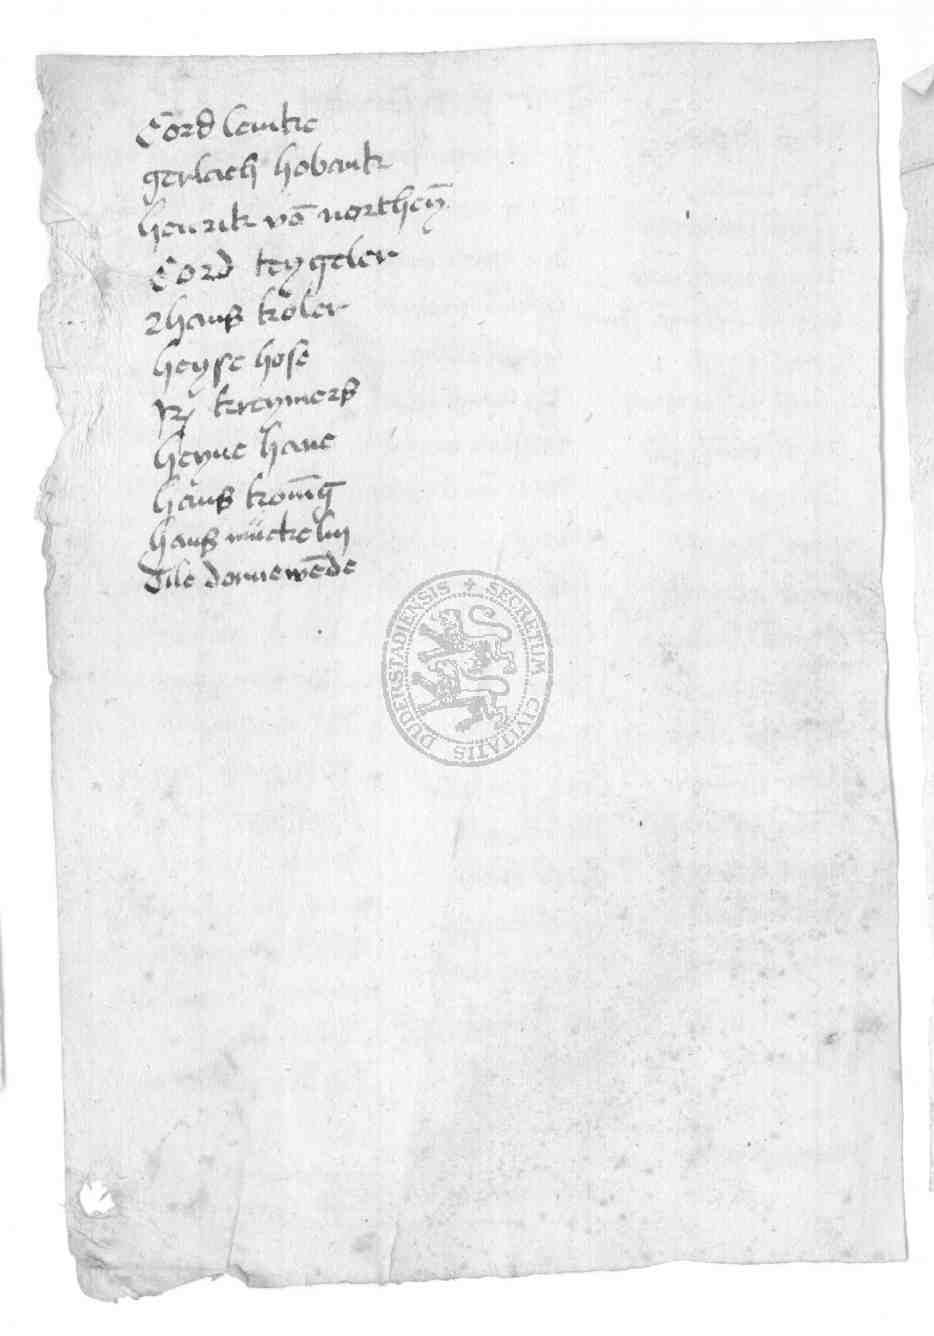 Cord lemke
gerlach hovank
henrik vō northeȳ
Cord teygeler
hans koler
heyse hose
kreymers
heyne hane
hans konīg
hans
Tile dannewēde
SECRETUM CIVITATIS DUDERSTADIENSIS